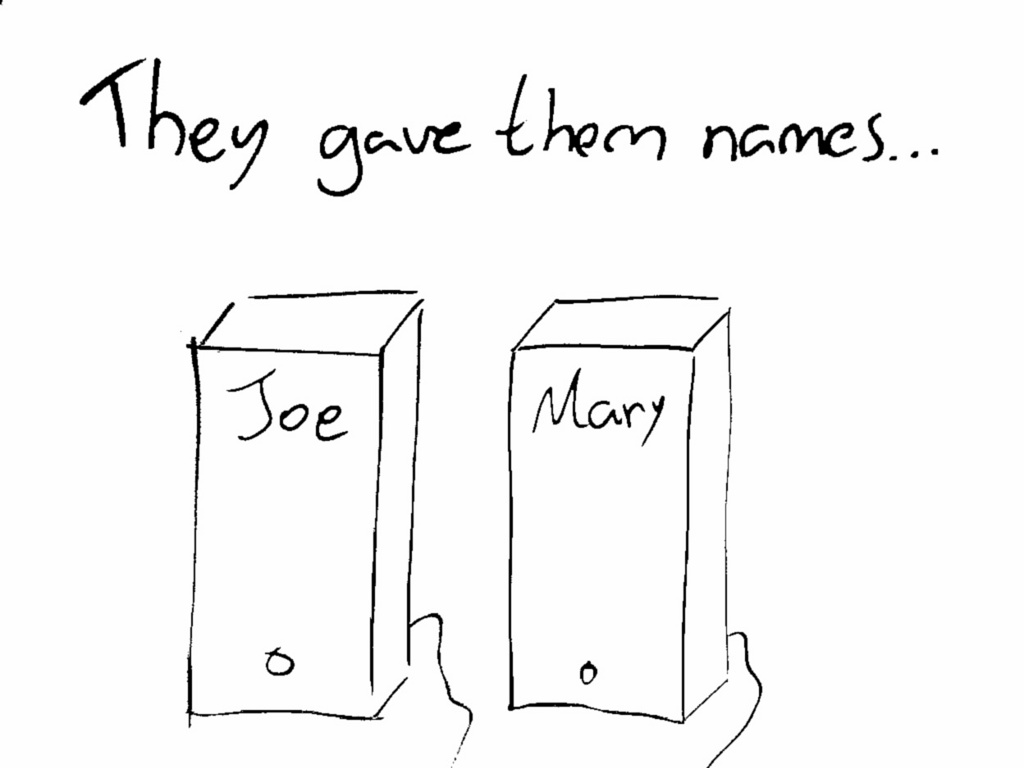 They gave them names...
Joe
Mary